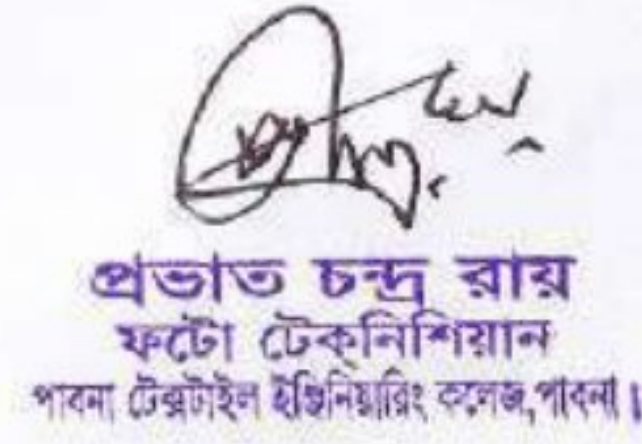 প্রভাত চন্দ্র রায়
ফটো টেক্‌নিশিয়ান
পাবনা টেক্সটাইল ইঞ্জিনিয়ারিং কলেজ,পাবনা।